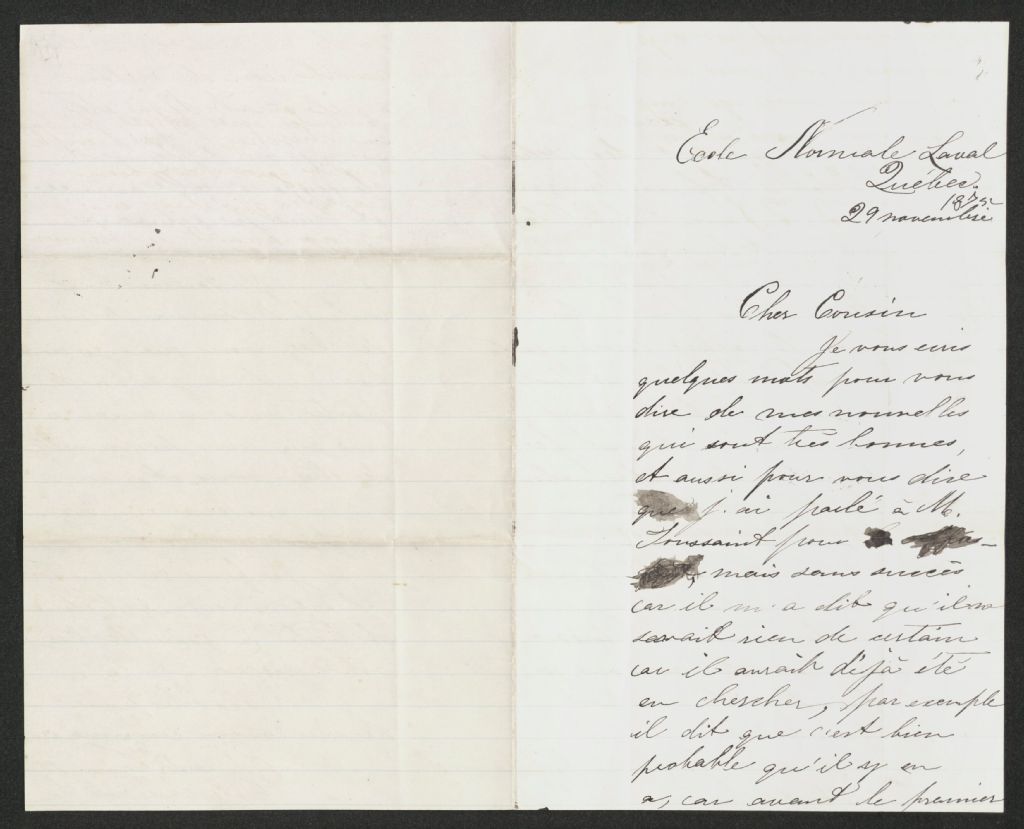 Ecole Normale Laval
Québec.
29 novembre
Cher Cousin
Je vous ecris
quelques mots pour vous
dire de mes nouvelles
qui sont tres bonnes,
et aussi pour vous dire
que j'ai parlé à M.
Toussaint pour
mais sans succès
car il m'a dit qu'il ne
savait rien de certain
car il aurait déjà été
en chercher, par exemple
il dit que c'est bien
probable qu'il y en
a, car avant le premier